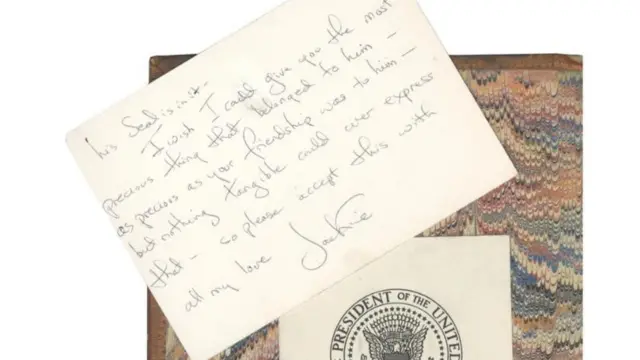 his Seal is in it -
I wish I could give you the most
precious thing that belonged to him -
as precious as your friendship was to him -
but nothing tangible could ever express
that - so please accept this with
all my love
Jackie
PRESIDENT OF THE UNITED